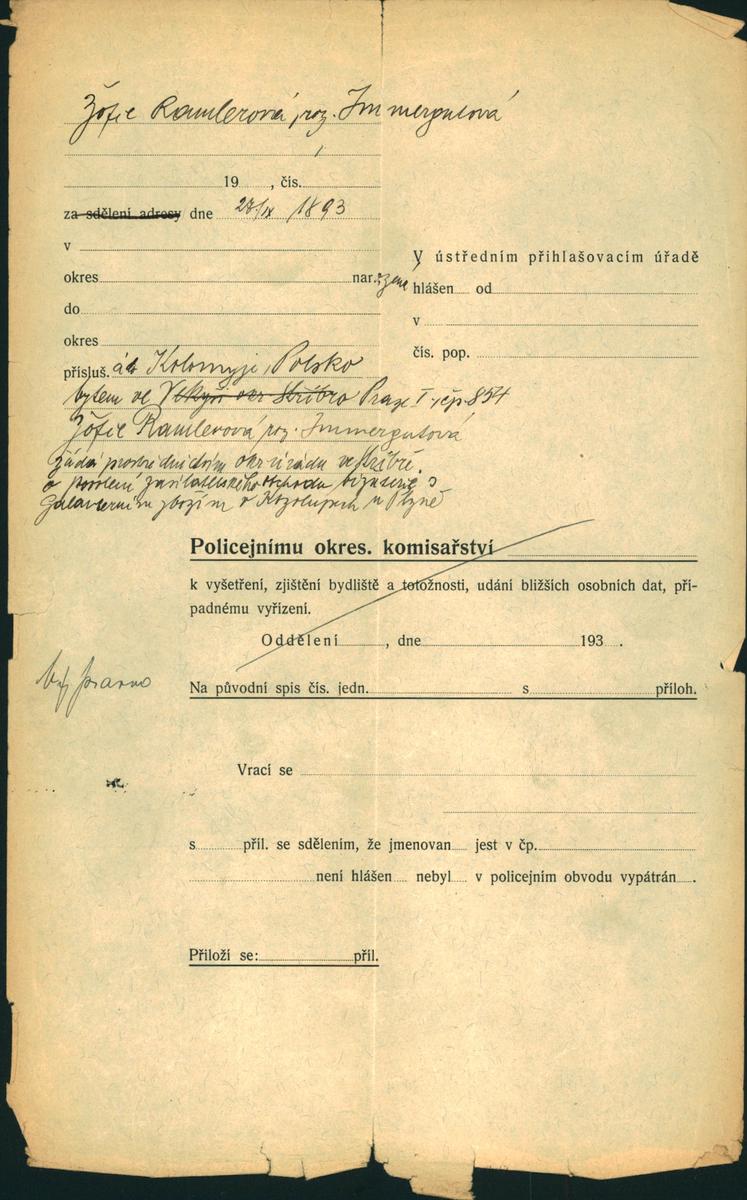 Žofie Ramlerová, roz. Immergutová
19 , čís.
za sdělení adresy dne 28/IX 1893
v
V ústředním přihlašovacím úřadě
okres nar.
hlášen od
do
v
okres
čís. pop.
přísluš. do Kolomyje, Polsko
bytem ve okr Stříbro Praze I čp 854
Žofie Ramlerová roz. Immergutová
žádá prostřednictvím okr. úřadu ve Stříbře
o povolení zasílatelského obchodu bižuterie s
galanterním zbožím v Kozolupech u Plzně
Policejnímu okres. komisařství
k vyšetření, zjištění bydliště a totožnosti, udání bližších osobních dat, pří-
padnému vyřízení.
Oddělení , dne 193 .
Na původní spis čís. jedn. s příloh.
Vrací se
s příl. se sdělením, že jmenovan jest v čp.
není hlášen nebyl v policejním obvodu vypátrán .
Přiloží se: příl.